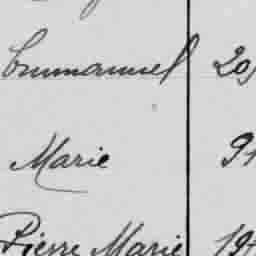 Emmanuel 20
Marie 91
Pierre Marie 19